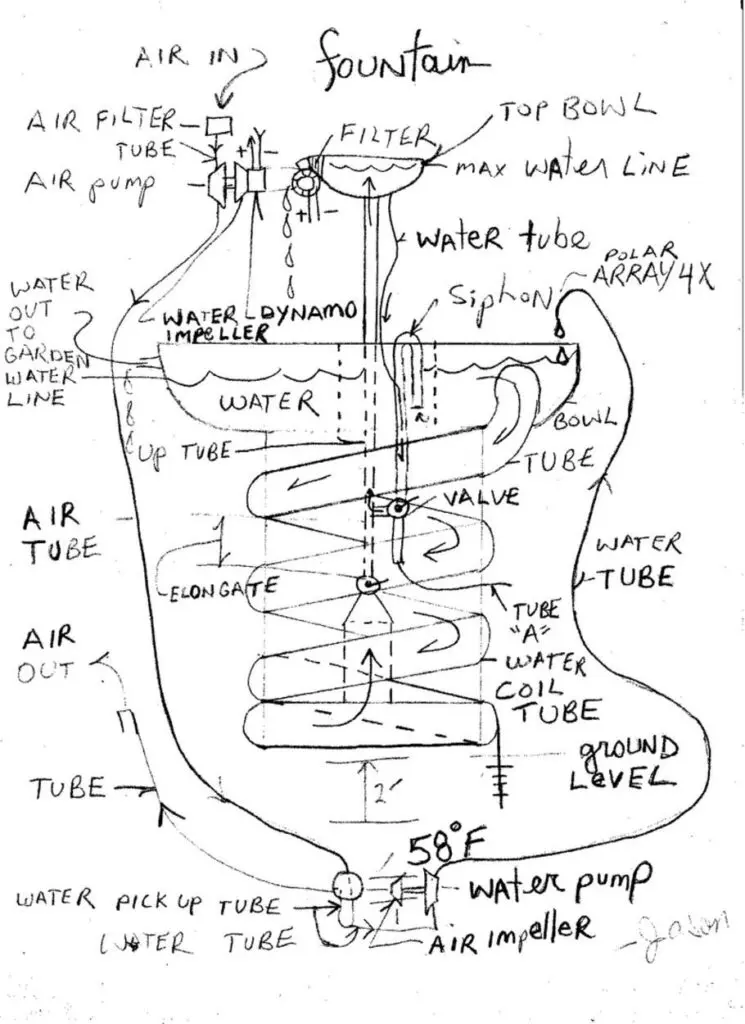 fountain
AIR IN
AIR FILTER
TUBE
AIR pump
+ -
FILTER
TOP BOWL
MAX WATER LINE
+ -
WATER tube
POLAR
ARRAY 4X
SiphON
WATER
OUT
TO
GARDEN
WATER
LINE
WATER
IMPELLER
DYNAMO
WATER
BOWL
UP TUBE
TUBE
VALVE
AIR
TUBE
ELONGATE
WATER
TUBE
TUBE
"A"
AIR
OUT
WATER
COIL
TUBE
GROUND
LEVEL
TUBE
2'
58°F
WATER PICK UP TUBE
WATER pump
WATER TUBE
AIR IMPELLER
-Jason